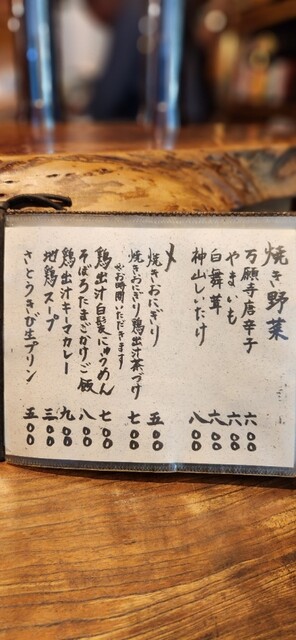 焼き野菜
万願寺唐辛子 六〇〇
やまいも 六〇〇
白舞茸 六〇〇
神山しいたけ 八〇〇
〆
焼きおにぎり 五〇〇
焼きおにぎり鶏出汁茶づけ 七〇〇
※お時間いただきます
鶏出汁白髪にゅうめん 七〇〇
そぼろたまごかけご飯 八〇〇
鶏出汁キーマカレー 九〇〇
地鶏スープ 三〇〇
さとうきび生プリン 五〇〇